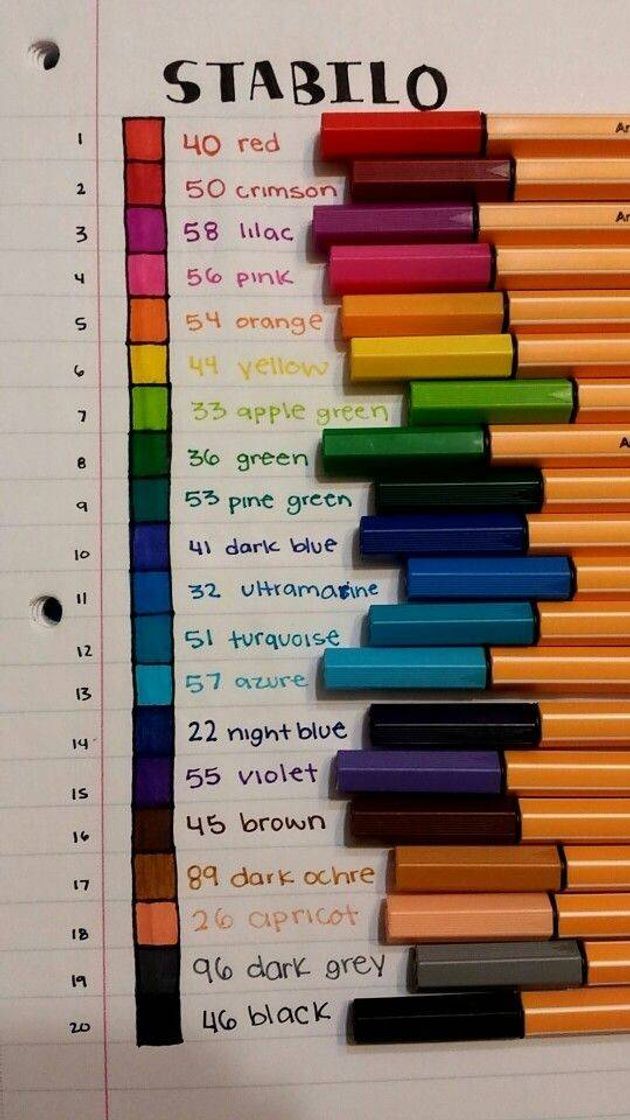 STABILO
1 40 red Ar
2 50 crimson
3 58 lilac Ar
4 56 pink
5 54 orange
6 44 yellow
7 33 apple green
8 36 green A
9 53 pine green
10 41 dark blue
11 32 ultramarine
12 51 turquoise
13 57 azure
14 22 night blue
15 55 violet
16 45 brown
17 89 dark ochre
18 26 apricot
19 96 dark grey
20 46 black